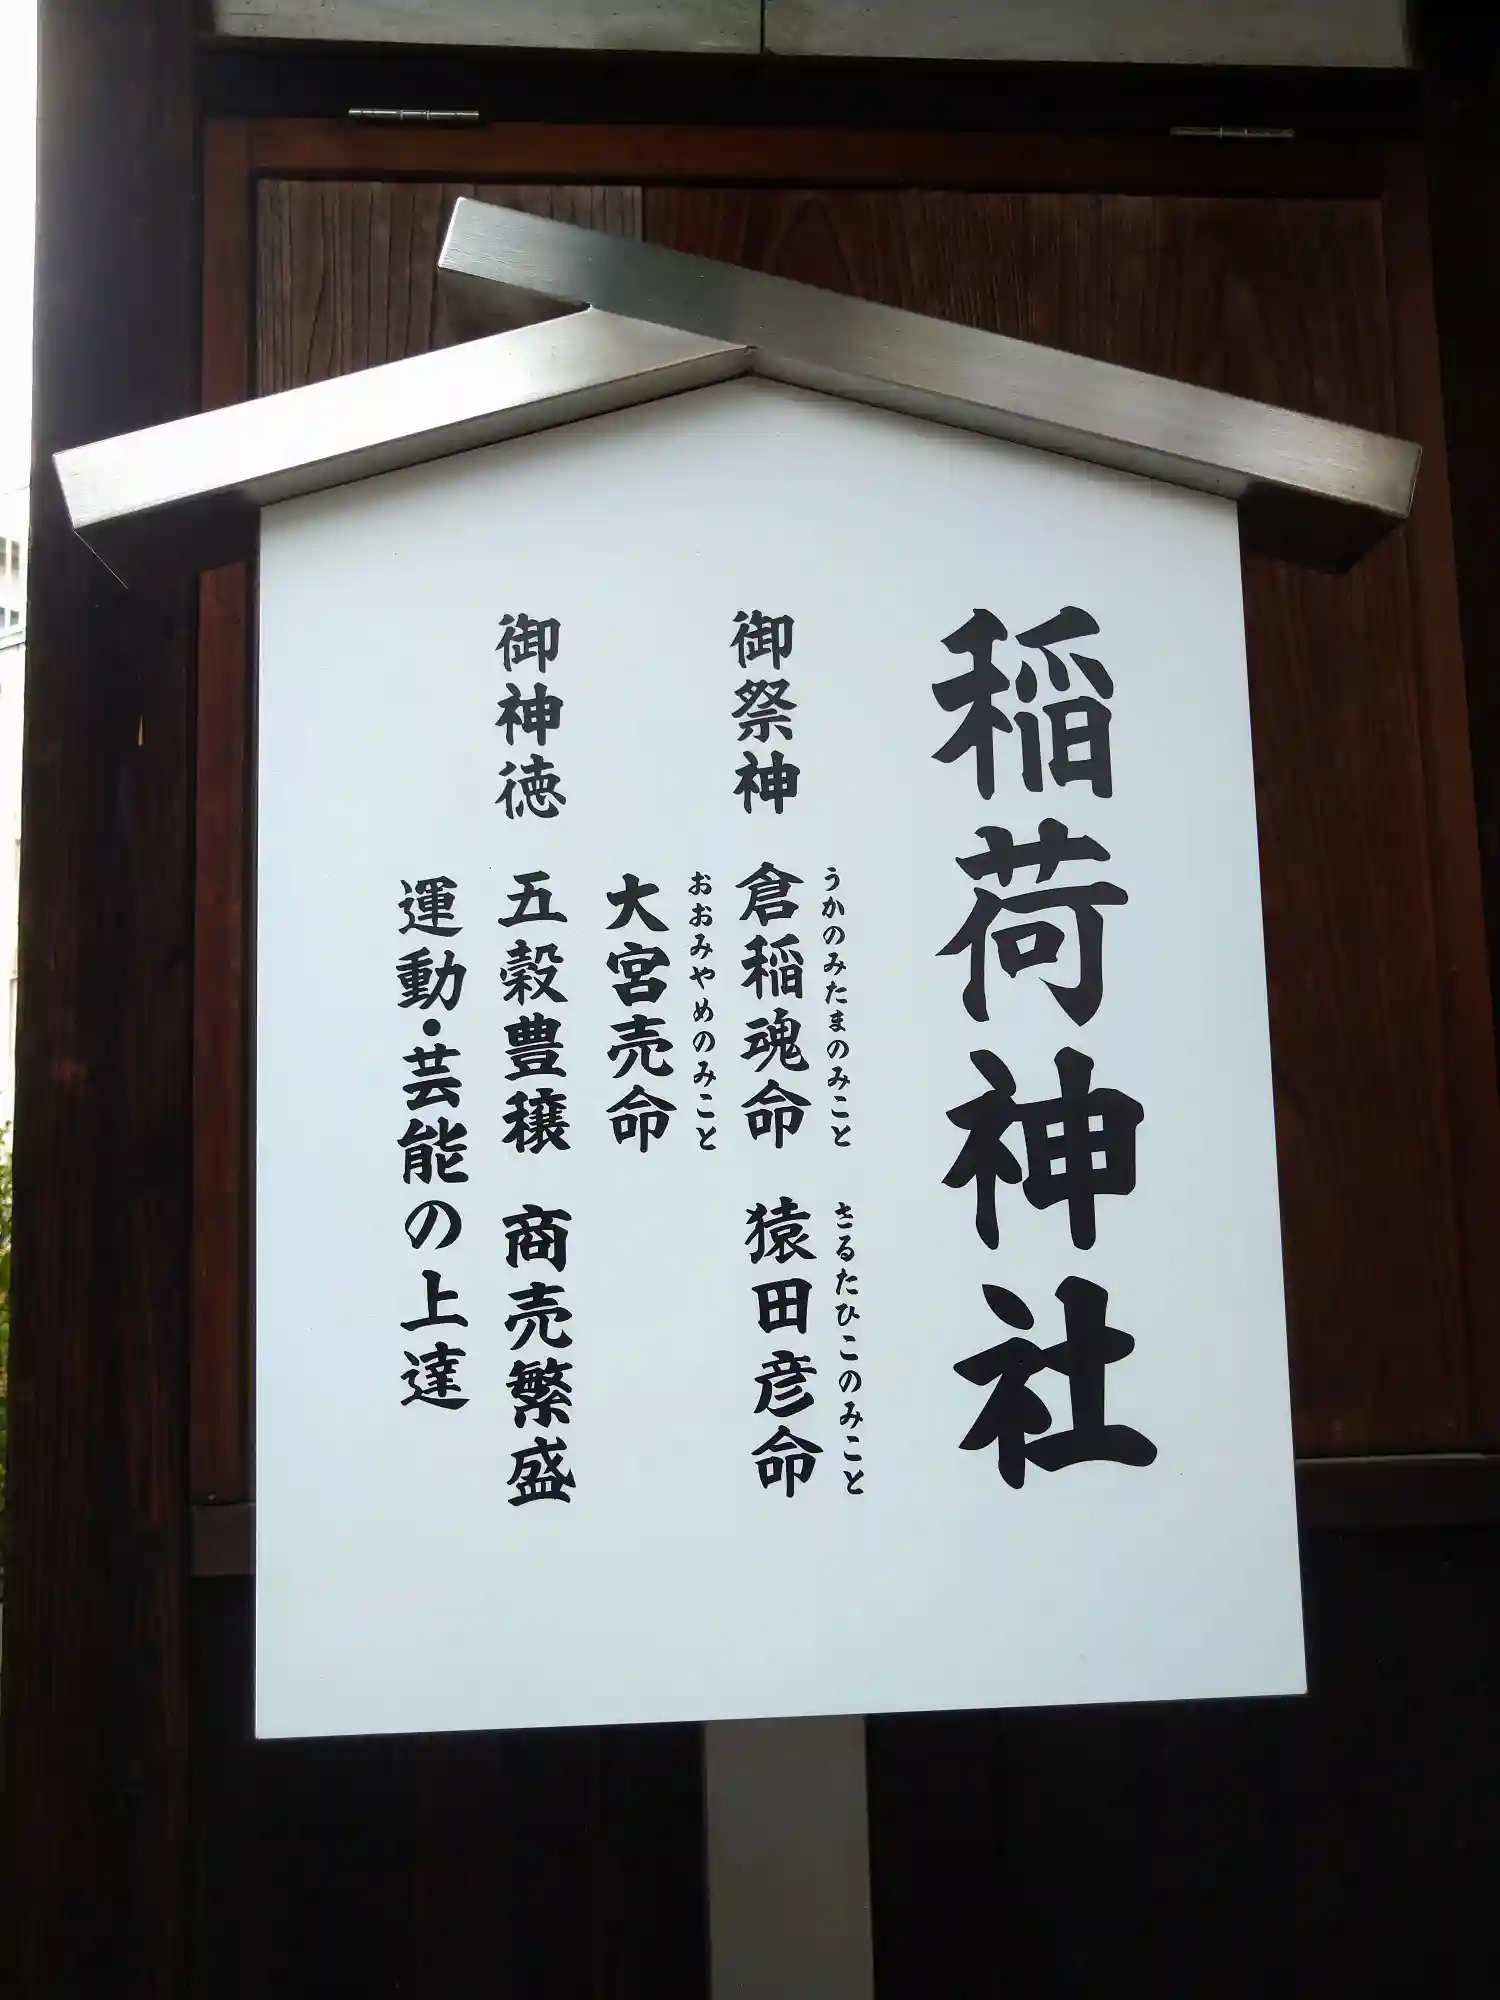 稲荷神社
御祭神 倉稲魂命 猿田彦命
うかのみたまのみこと さるたひこのみこと
大宮売命
おおみやめのみこと
御神徳 五穀豊穣 商売繁盛
運動・芸能の上達